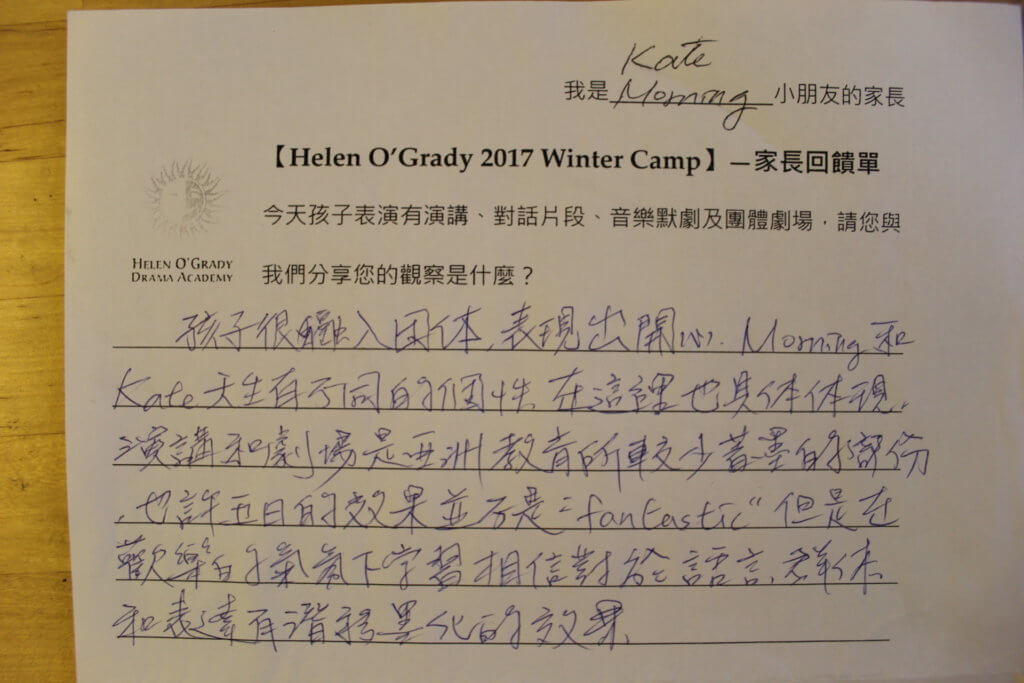 Kate
我是 Morning 小朋友的家長
【Helen O'Grady 2017 Winter Camp】—家長回饋單
今天孩子表演有演講、對話片段、音樂默劇及團體劇場，請您與
HELEN O'GRADY
DRAMA ACADEMY
我們分享您的觀察是什麼？
孩子很融入团体,表現出開心. Morning 和
Kate天生有不同的個性 在這裡也具体体現,
演講和劇場是亞洲教育所較少著墨的部份
,也許五日的效果並不是"fantastic"但是在
歡樂的氣氛下學習相信對於語言、群体
和表達有潛移墨化的效果